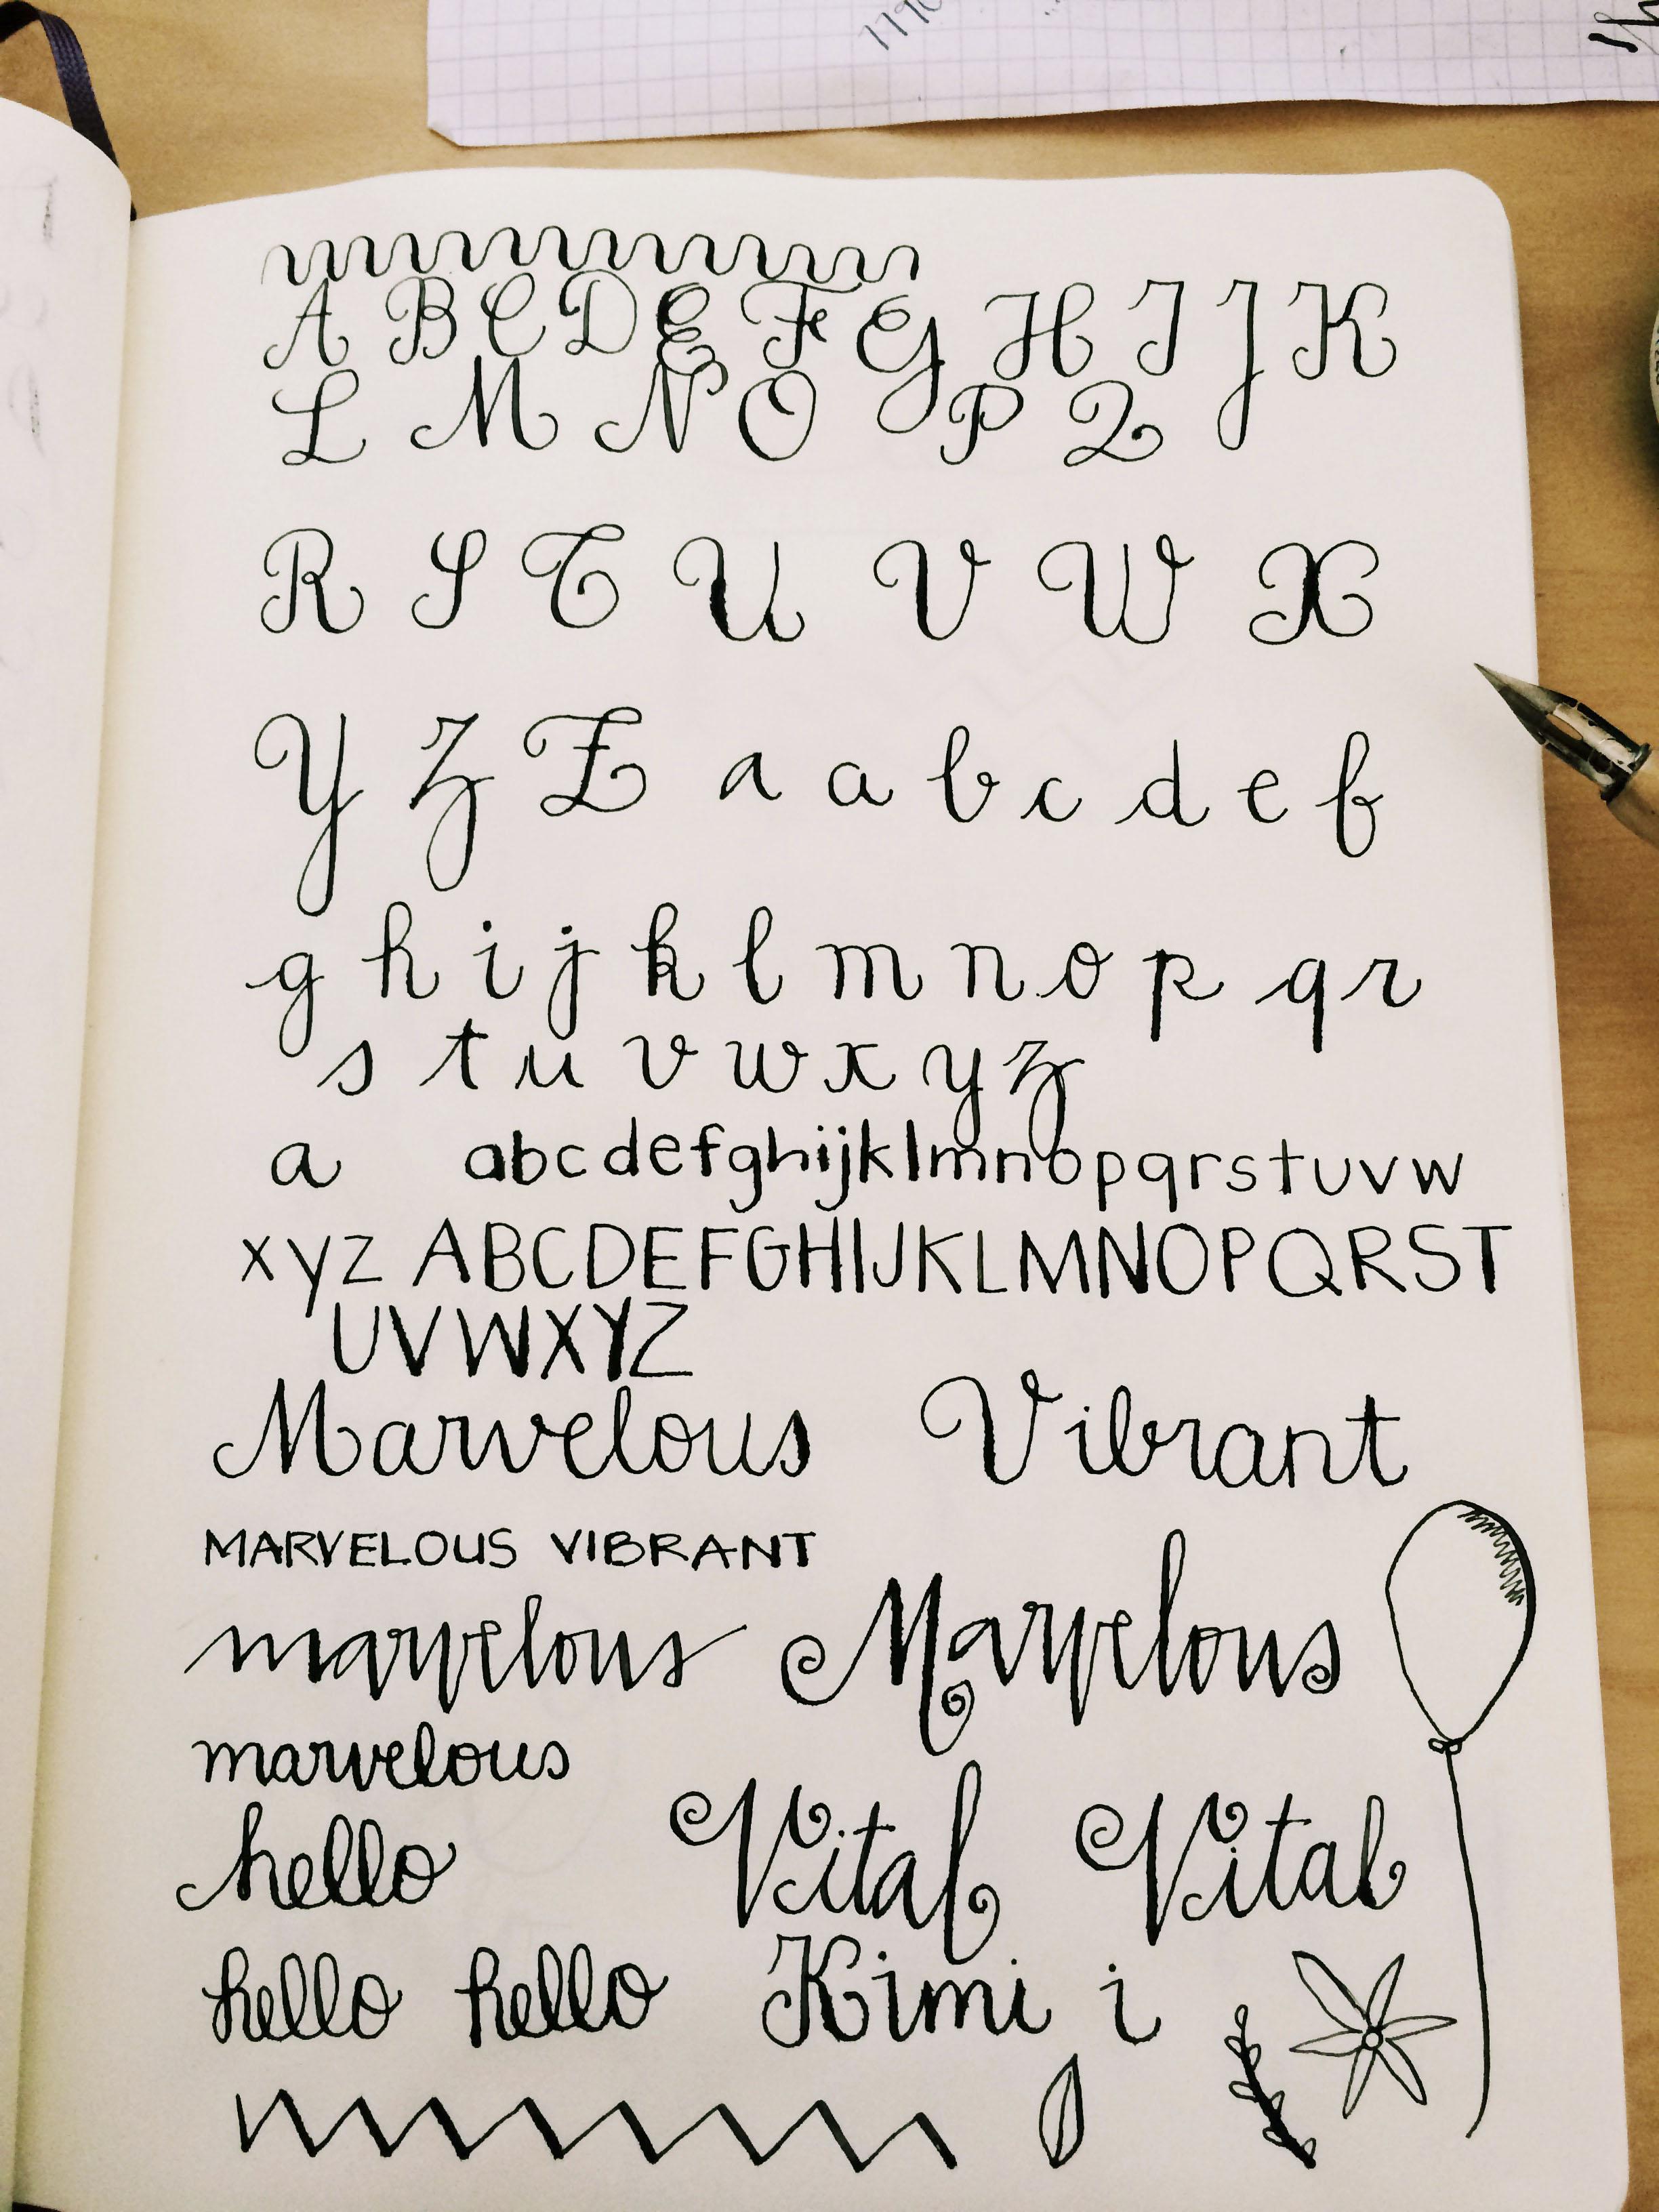 A B C D E F G H I J K
L M N O P Q
R S T U V W X
Y Z Z a a b c d e f
g h i j k l m n o p q r
s t u v w x y z
a abcdefghijklmnopqrstuvw
xyz ABCDEFGHIJKLMNOPQRST
UVWXYZ
Marvelous Vibrant
MARVELOUS VIBRANT
marvelous Marvelous
marvelous
hello Vital Vital
hello hello Kimi i